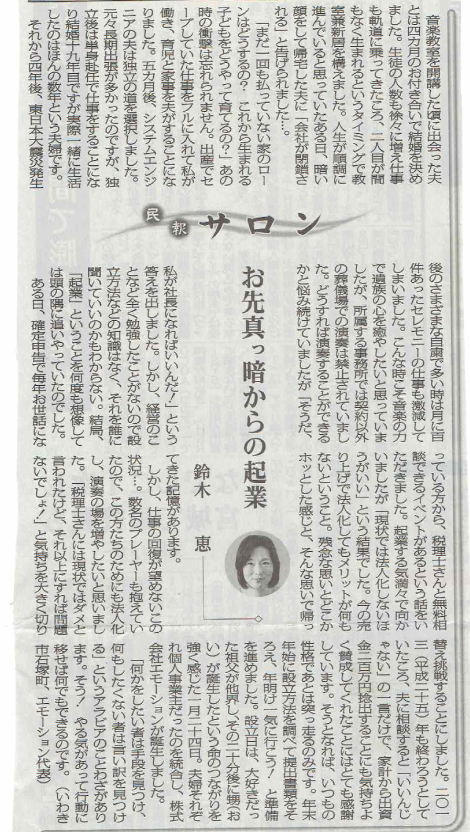 民報サロン
お先真っ暗からの起業
鈴木　恵
　音楽教室を開講した頃に出会った夫
とは四カ月のお付き合いで結婚を決め
ました。生徒の人数も徐々に増え仕事
も軌道に乗ってきたころ、二人目が間
もなく生まれるというタイミングで教
室兼新居を構えました。人生が順調に
進んでいると思っていたある日、暗い
顔をして帰宅した夫に「会社が閉鎖さ
れる」と告げられました…。
「まだ一回も払っていない家のロー
ンはどうするの？　これから生まれる
子どもをどうやって育てるの？」あの
時の衝撃は忘れられません。出産でセ
ーブしていた仕事をフルに入れて私が
働き、育児と家事を夫がすることにな
りました。五カ月後、システムエンジ
ニアの夫は独立の道を選択しました。
元々長期出張が多かったのですが、独
立後は単身赴任で仕事をすることにな
り結婚十九年目ですが実際一緒に生活
したのはほんの数年という夫婦です。
それから四年後、東日本大震災発生
後のさまざまな自粛で多い時は月に百
件あったセレモニーの仕事も激減して
しまいました。こんな時こそ音楽の力
で遺族の心を癒やしたいと思っていま
したが、所属する事務所では契約以外
の葬儀場での演奏は禁止されていまし
た。どうすれば演奏することができる
かと悩み続けていましたが「そうだ、
私が社長になればいいんだ！」という
答えを出しました。しかし、経営のこ
となど全く勉強したことがないので設
立方法などの知識はなく、それを誰に
聞いていいのかもわからない。結局、
「起業」ということを何度も想像して
は頭の隅に追いやっていたのでした。
　ある日、確定申告で毎年お世話にな
っている方から、税理士さんと無料相
談できるイベントがあるという話をい
ただきました。起業する気満々で向か
いましたが「現状では法人化しないほ
うがいい」という結果でした。今の売
り上げで法人化してもメリットが何も
ないということ。残念な思いとどこか
ホッとした感じと、そんな思いで帰っ
てきた記憶があります。
　しかし、仕事の回復が望めないこの
状況…。数名のプレーヤーも抱えてい
たので、この方たちのためにも法人化
し、演奏の場を増やしたいと思いまし
た。「税理士さんには現状ではダメと
言われたけど、それ以上にすれば問題
ないでしょ！」と気持ちを大きく切り
替え挑戦することにしました。二〇一
三（平成二十五）年も終わろうとして
いたころ、夫に相談すると「いいんじ
ゃない」の一言だけで、家計から出資
金三百万円捻出することにも気持ちよ
く賛成してくれたことにはとても感謝
しています。そうとなれば、いつもの
性格であとは突っ走るのみです。年末
年始に設立方法を調べて提出書類をそ
ろえ、年明け一気に行こう！　と準備
を進めました。設立日は、大好きだっ
た祖父が他界し、その二十八分後に甥（おい）が誕生したという命のつながりを
強く感じた二月二十四日。夫婦それぞ
れ個人事業主だったのを統合し、株式
会社エモーションが誕生しました。
　「何かをしたい者は手段を見つけ、
何もしたくない者は言い訳を見つけ
る」というアラビアのことわざがあり
ます。そう！　やる気があって行動に
移せば何でもできるのです。　（いわき
市石塚町、エモーション代表）